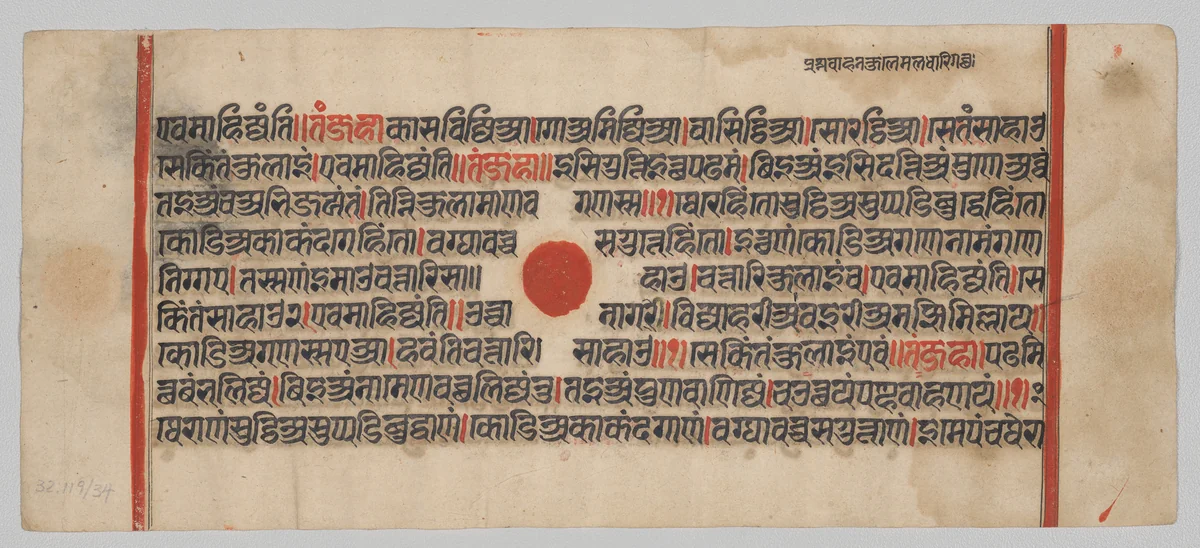 प्रश्नवाहनकुलमलधारिगच्छ।
एवमाहिज्जंति॥तं जहा कासविज्जिआ।गोअमिज्जिआ।वासिट्ठिआ।सोरट्ठिआ।से तं साहाउ
से किं तं कुलाइं।एवमाहिज्जंति॥तं जहा॥इसिगुत्तिइत्थपढमं।बिइअं इसिदत्तिअं मुणेअव्वं
तइअं च अभिजयंतं।तिन्नि कुला माणव गणस्स॥१।थेरेहिंतो सुट्ठिअसुप्पडिबुद्धेहिंतो
कोडिअकाकंदगेहिंतो।वग्घावच्च सगुत्तेहिंतो।इत्थणं कोडिअगणे नामं गणे
निग्गए।तस्सणं इमाउ चत्तारि सा॥ हाउ।चत्तारि कुलाइं च।एवमाहिज्जंति।से
किं तं साहाउ २।एवमाहिज्जंति॥उच्चा नागरी।विज्जाहरी अ वइरी अ मज्झिमिल्ला य॥
कोडिअगणस्स एआ।हवंति चत्तारि। साहाउ॥१।से किं तं कुलाइं एवं॥तं जहा।पढमि
त्थ बंभलिज्जं।बिइअं नामेण वच्छलिज्जं तु।तइअं पुण वाणिज्जं।चउत्थयं पण्हवाहणयं॥१।
थेराणं सुट्ठिअसुप्पडिबुद्धाणं।कोडिअकाकंदगाणं।वग्घावच्चसगुत्ताणं।इमे पंच थेरा
32.119/34